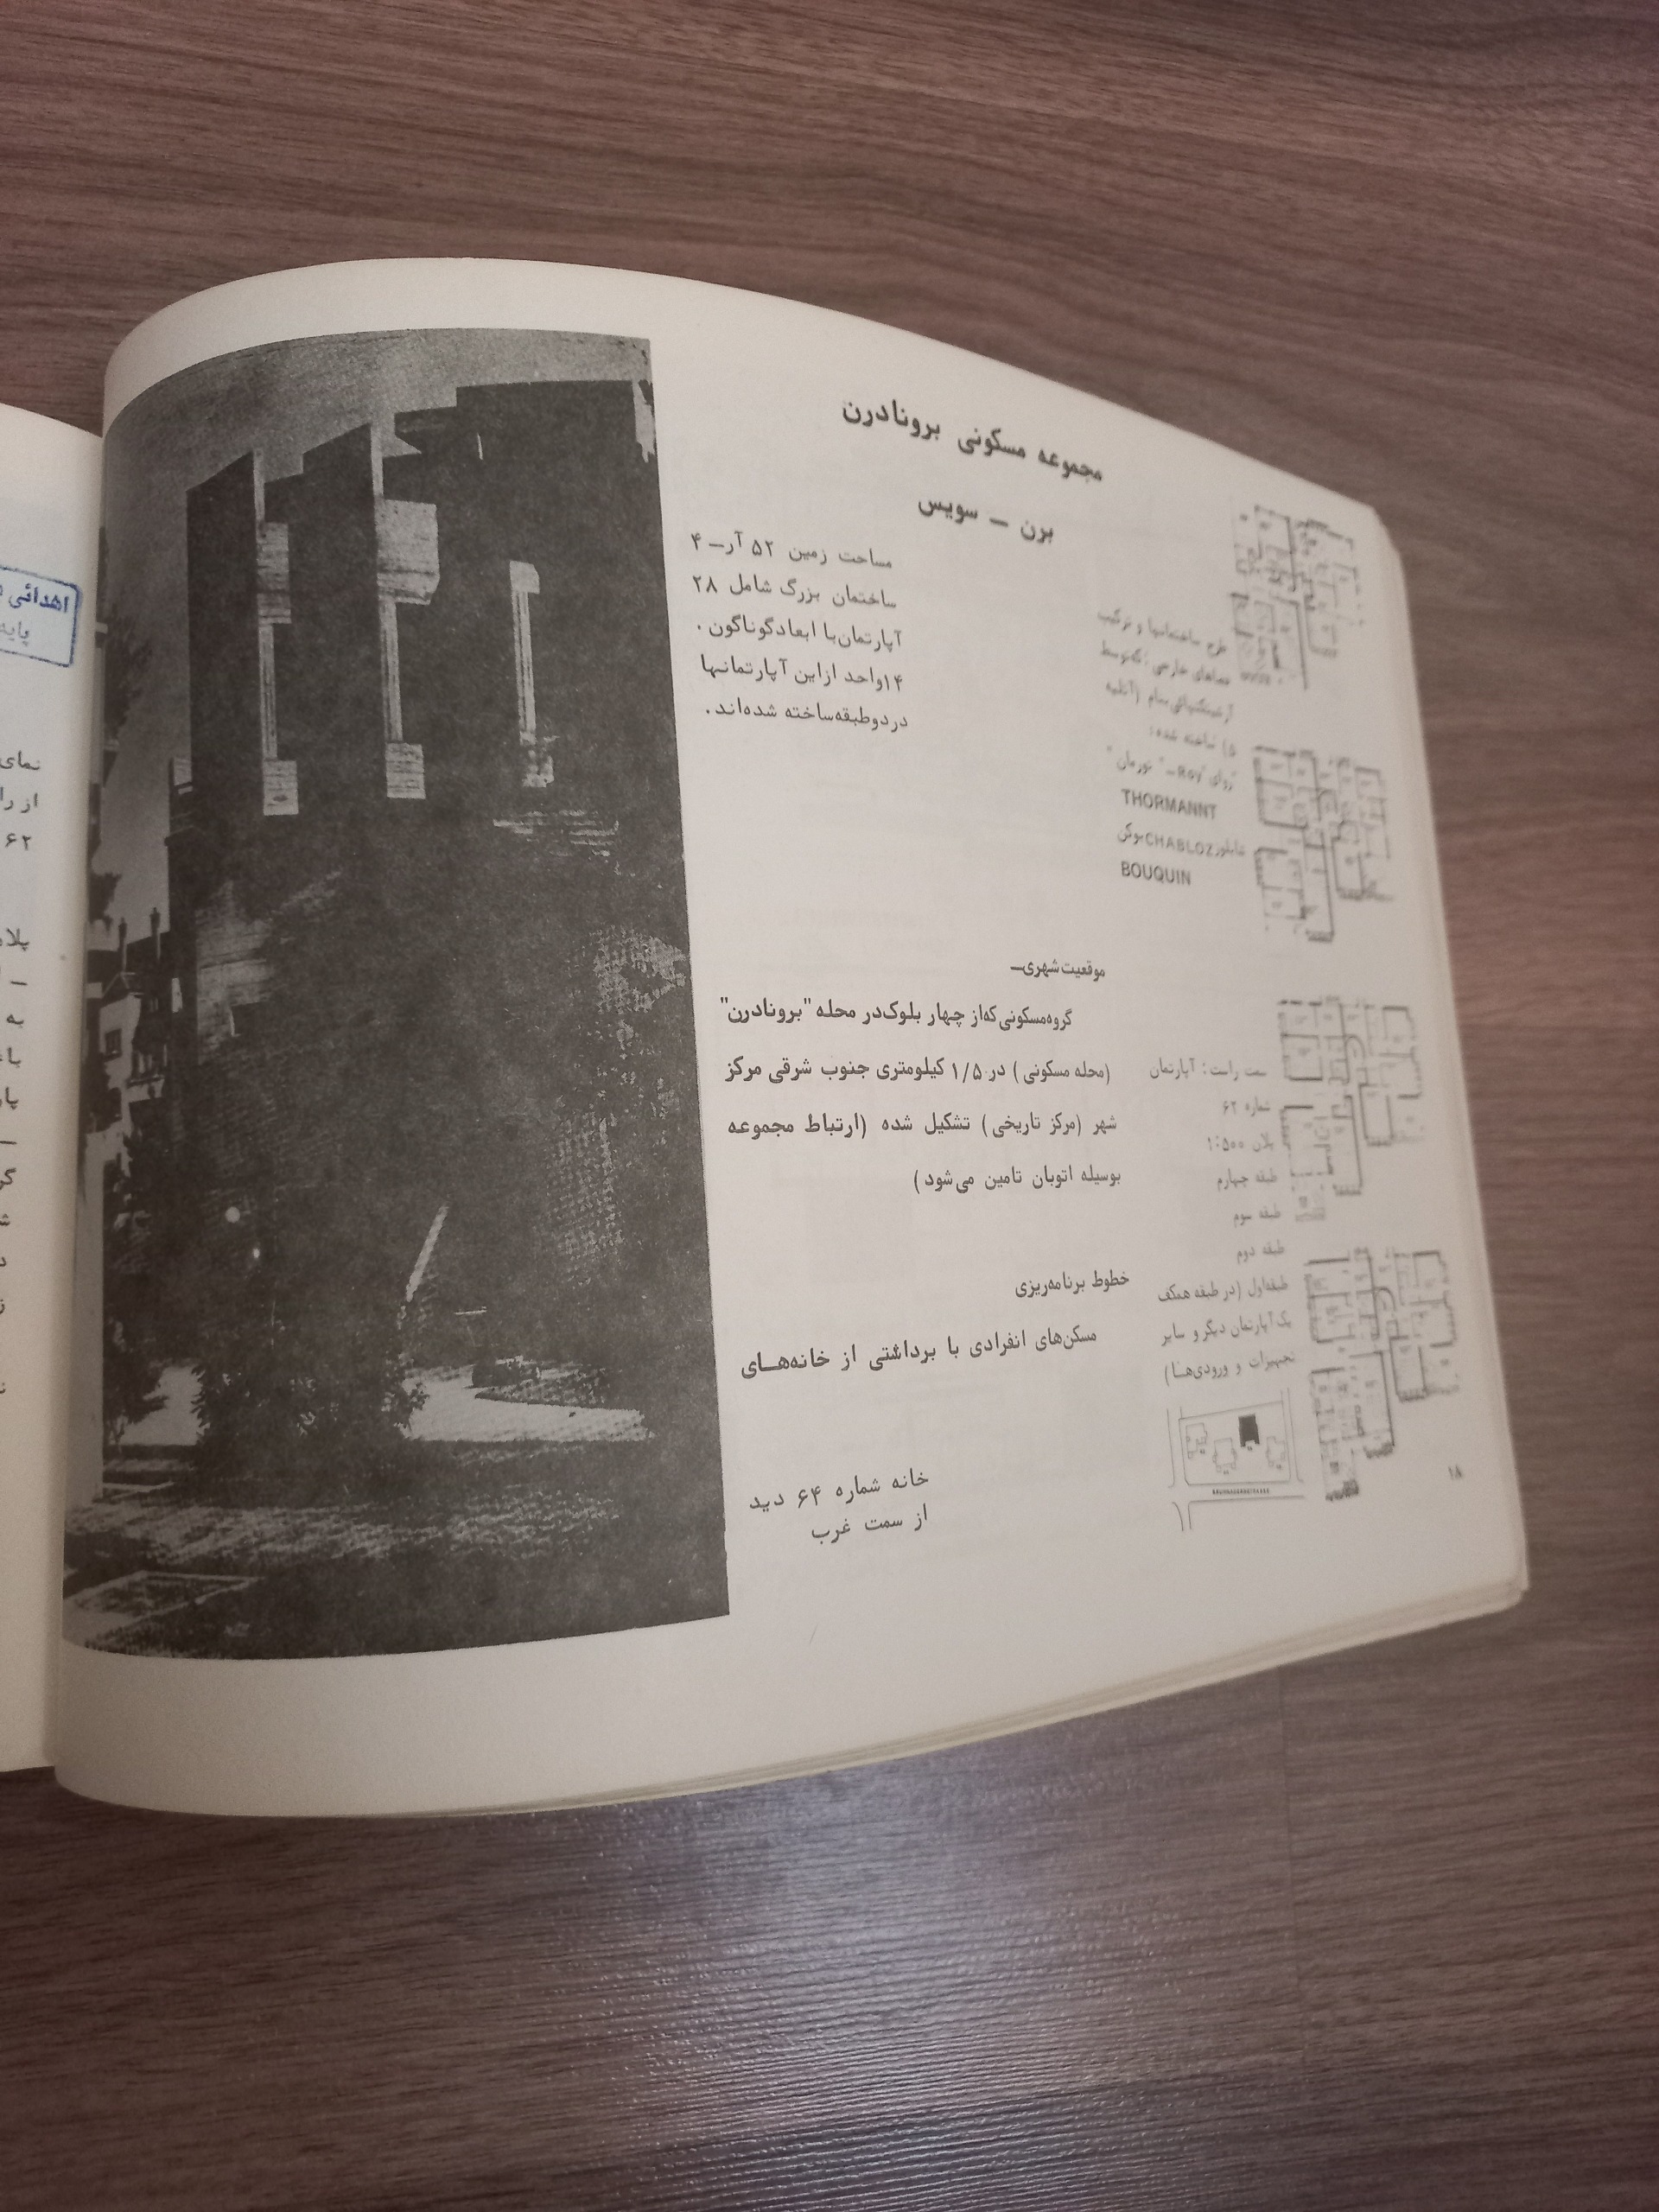 مجموعه مسکونی برونادرن
برن – سویس
مساحت زمین ۵۲ آر– ۴
ساختمان بزرگ شامل ۲۸
آپارتمان‌با ابعادگوناگون .
۱۴واحد ازاین آپارتمانها
دردوطبقه‌ساخته شده‌اند .
طرح ساختمانها و ترکیب
نماهای خارجی :که‌توسط
آرشیتکتهائی‌بنام (آتلیه
۵) ساخته شده:
"روای Roy–" تورمان "
THORMANNT
شابلوزCHABLOZبوکن
BOUQUIN
موقعیت‌شهری–
گروه‌مسکونی‌که‌از چهار بلوک‌در محله "برونادرن"
(محله مسکونی) در ۱/۵ کیلومتری جنوب شرقی مرکز
شهر (مرکز تاریخی) تشکیل شده (ارتباط مجموعه
بوسیله اتوبان تامین می‌شود)
خطوط برنامه‌ریزی
مسکن‌های انفرادی با برداشتی از خانه‌هـای
سمت راست: آپارتمان
شماره ۶۲
پلان ۱:۵۰۰
طبقه چهارم
طبقه سوم
طبقه دوم
طبقه‌اول (در طبقه همکف
یک‌آپارتمان دیگر و سایر
تجهیزات و ورودی‌هـا)
خانه شماره ۶۴ دید
از سمت غرب
۱۸
اهدائی
پایه
نمای
از را
۶۲
پلا
–
به
با
پار
–